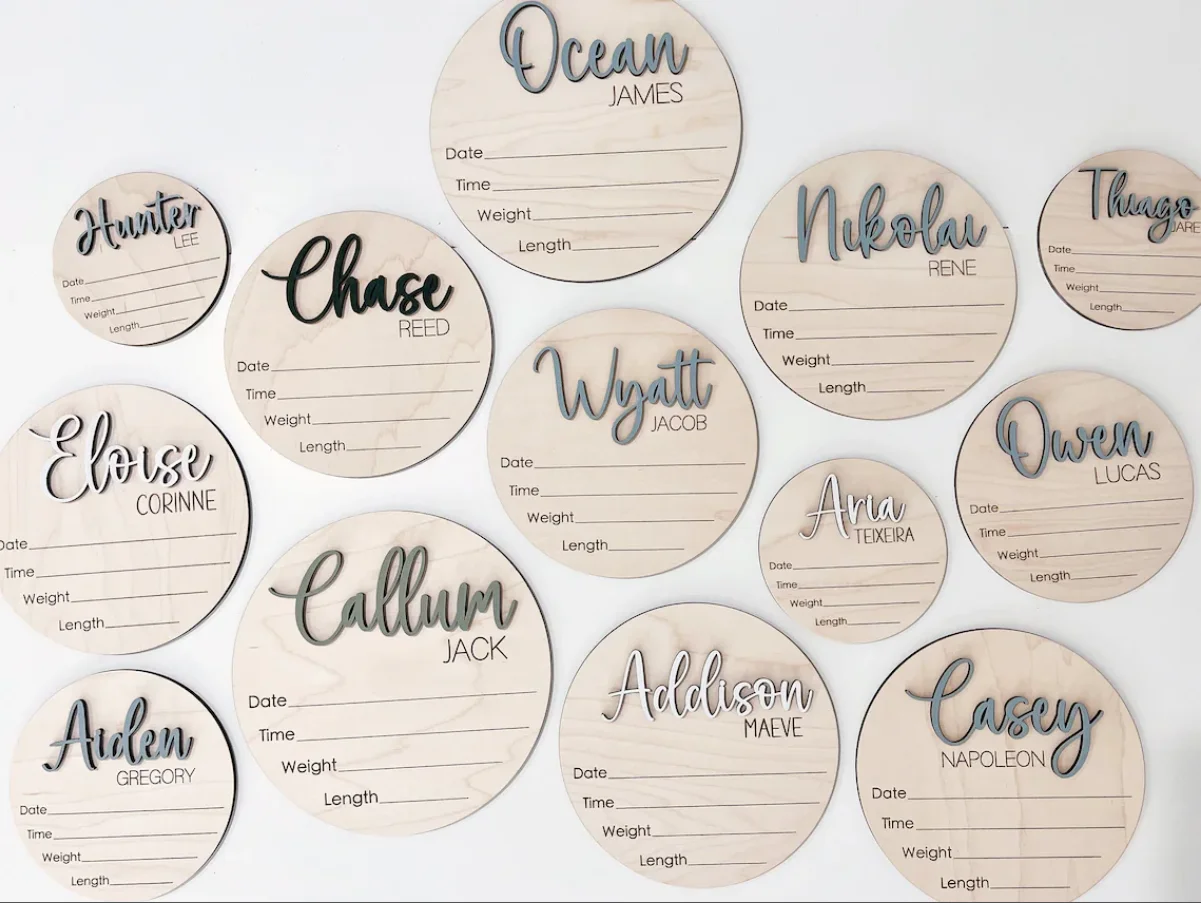 Ocean
JAMES
Date
Time
Weight
Length
Hunter
LEE
Date
Time
Weight
Length
Chase
REED
Date
Time
Weight
Length
Nikolai
RENE
Date
Time
Weight
Length
Thiago
JARE
Date
Time
Weight
Length
Wyatt
JACOB
Date
Time
Weight
Length
Eloise
CORINNE
Date
Time
Weight
Length
Owen
LUCAS
Date
Time
Weight
Length
Aria
TEIXEIRA
Date
Time
Weight
Length
Callum
JACK
Date
Time
Weight
Length
Addison
MAEVE
Date
Time
Weight
Length
Casey
NAPOLEON
Date
Time
Weight
Length
Aiden
GREGORY
Date
Time
Weight
Length